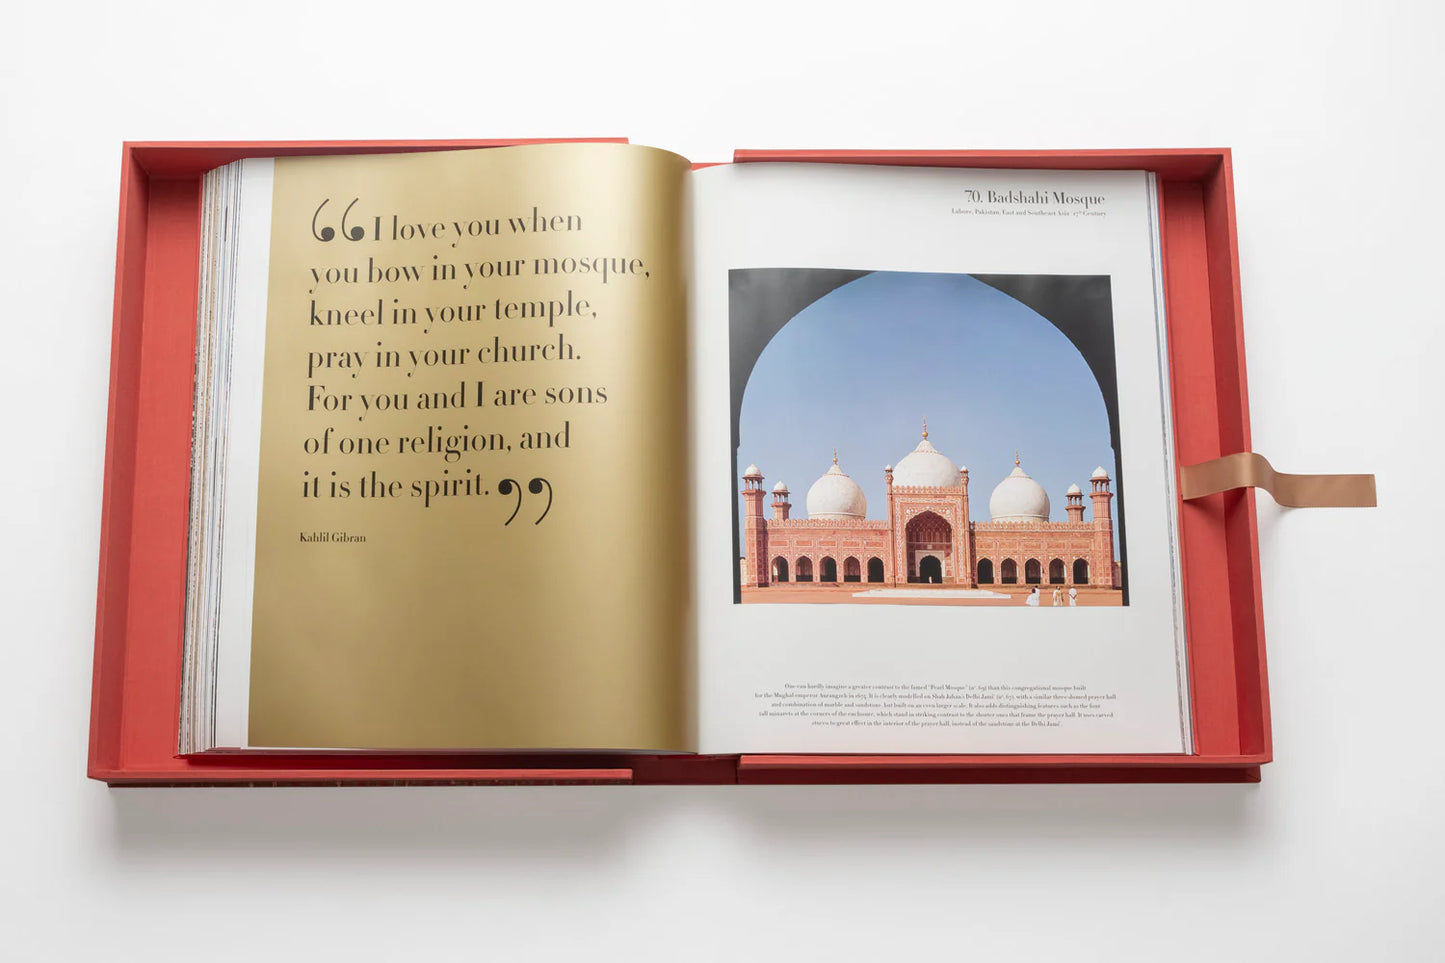 “I love you when
you bow in your mosque,
kneel in your temple,
pray in your church.
For you and I are sons
of one religion, and
it is the spirit.”
Kahlil Gibran
70. Badshahi Mosque
Lahore, Pakistan, East and Southeast Asia 17th Century
One can hardly imagine a greater contrast to the famed “Pearl Mosque” (nº. 69) than this congregational mosque built
for the Mughal emperor Aurangzeb in 1673. It is clearly modelled on Shah Jahan’s Delhi Jami’ (nº. 67), with a similar three-domed prayer hall
and combination of marble and sandstone, but built on an even larger scale. It also adds distinguishing features such as the four
tall minarets at the corners of the enclosure, which stand in striking contrast to the shorter ones that frame the prayer hall. It uses carved
stucco to great effect in the interior of the prayer hall, instead of the sandstone at the Delhi Jami’.